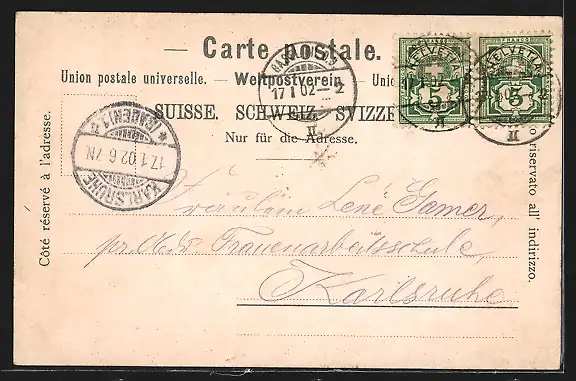 — Carte postale. —
Union postale universelle. — Weltpostverein. — Unio
SUISSE. SCHWEIZ. SVIZZE
Nur für die Adresse.
Côté réservé à l'adresse.
o riservato all' indirizzo.
17 I 02 – 2
II
KARLSRUHE
17.1.02.6-7N.
(BADEN) 1
FRANCO
HELVETIA
5
FRANCO
HELVETIA
5
II
Fräulein Lene Gamer,
Frauenarbeitsschule,
Karlsruhe